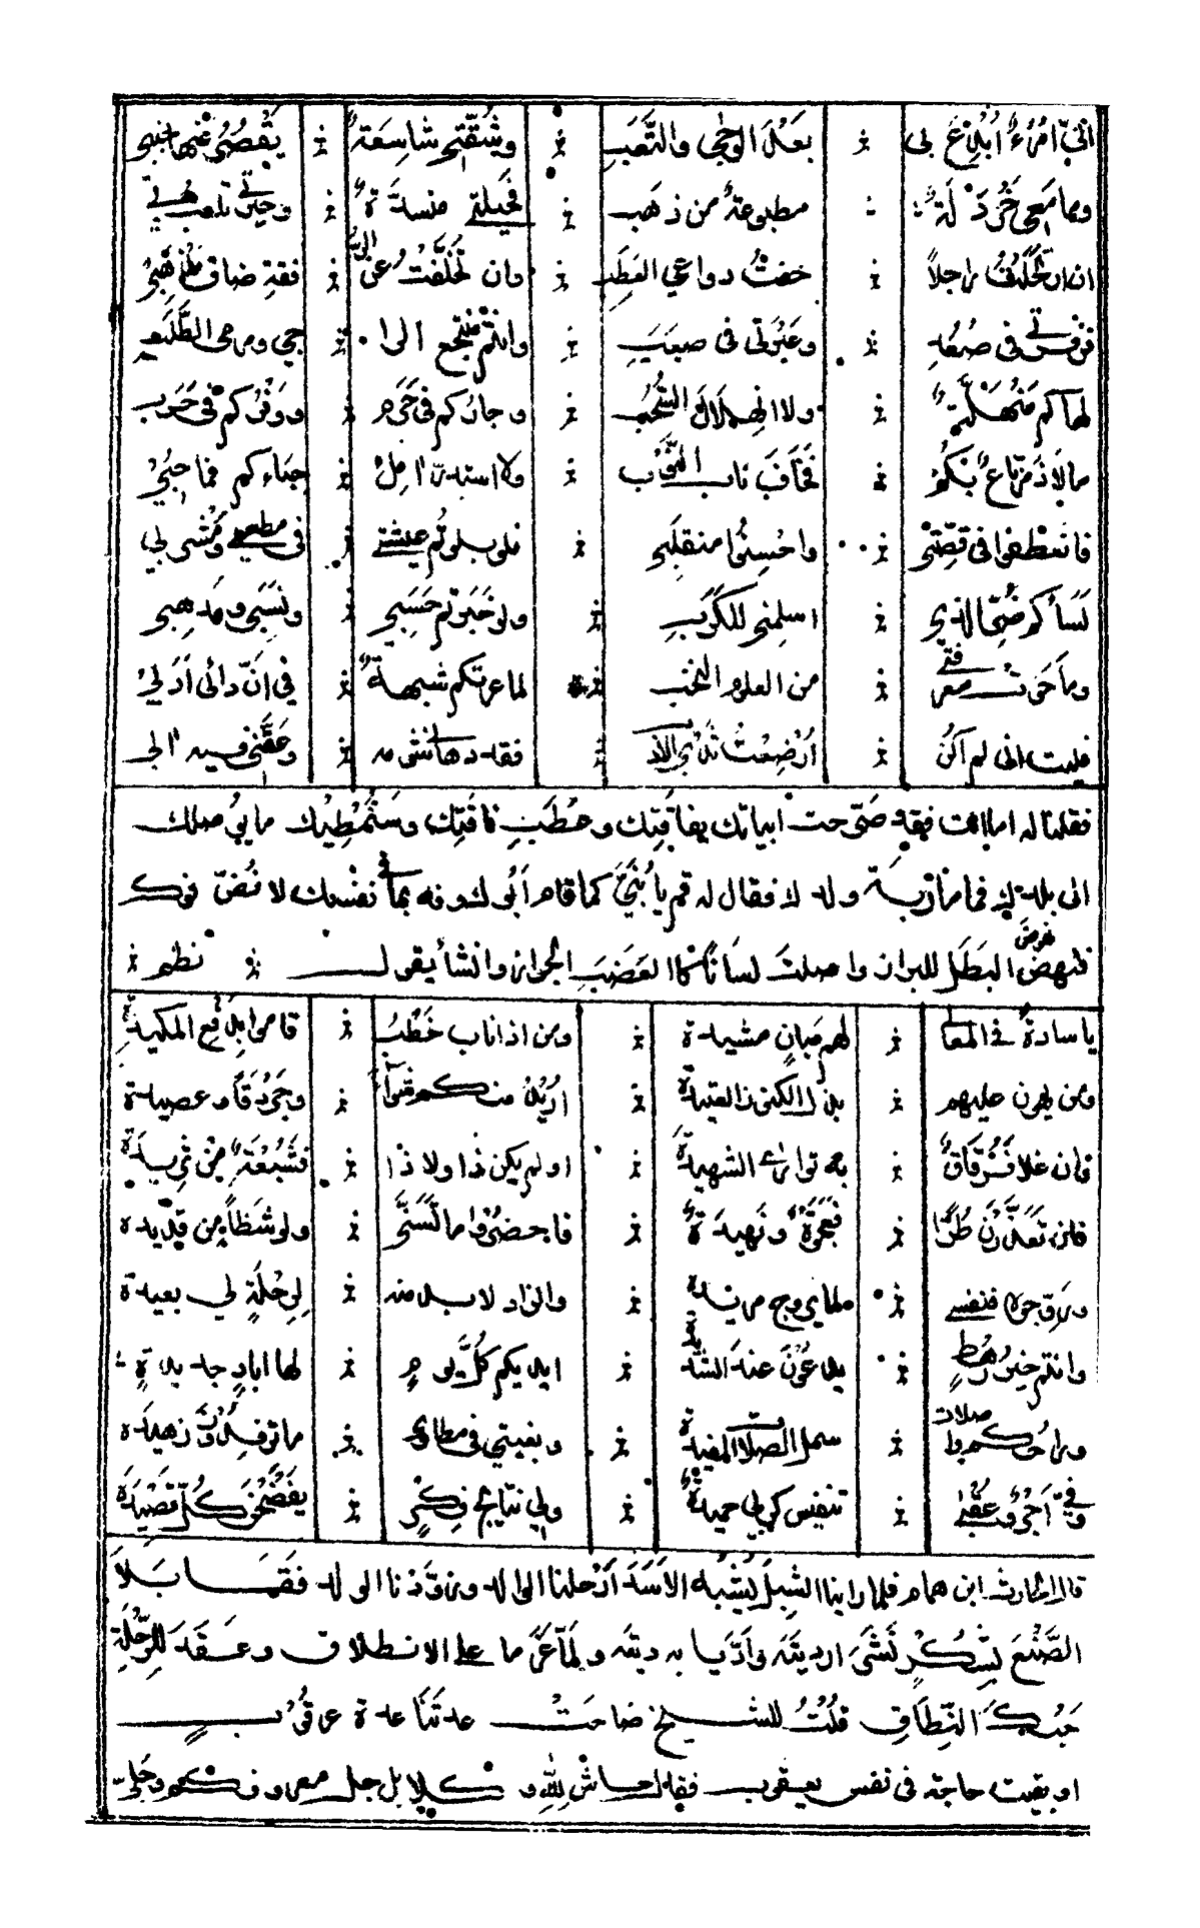 انى امرؤ ابدع بى بعد الوجى والتعب وشقتى شاسعة يقصر عنها خببى
وما معى خردلة مطبوعة من ذهب فحيلتى منسدة وحيرتى تلعب بى
ان ارتحلت راجلا خفت دواعى العطب وان تخلفت عن الر فقة ضاق مذهبى
فزفرتى فى صعد وعبرتى فى صبب وانتم منتجع الرا جى ومرمى الطلب
لهاكم منهلة ولا انهلال السحب وجاركم فى حرم ووفركم فى حرب
ما لاذ مرتاع بكم فخاف ناب النوب ولا استدر آمل حباءكم فما حبى
فانعطفوا فى قصتى واحسنوا منقلبى فلو بلوتم عيشتى فى مطعمى ومشربى
لساءكم ضرى الذى اسلمنى للكرب ولو خبرتم حسبى ونسبى ومذهبى
وما حوت معرفتى من العلوم النخب لما عرتكم شبهة فى ان دائى ادبى
فليت انى لم اكن ارضعت ثدى الادب فقد دهانى شومه وعقنى فيه ابى
فقلنا له اما انت فقد صرحت ابياتك بفاقتك وعطب ناقتك وسنمطيك ما يوصلك
الى بلدك فما مأربة ولدك فقال له قم يا بنى كما قام ابوك وفه بما فى نفسك لا فض فوك
فنهض نهوض البطل للبراز واصلت لسانا كالعضب الجراز وانشأ يقول نظم
يا سادة فى المعا لهم مبان مشيدة ومن اذا ناب خطب قاموا بدفع المكيدة
ومن يهون عليهم بذل الكنوز العتيدة اريد منكم شواء وجردقا وعصيدة
فان غلا فرقاق به توارى الشهيدة او لم يكن ذا ولا ذا فشبعة من ثريدة
فان تعذرن طرا فعجوة ونهيدة فاحضروا ما تسنى ولو شظا من قديدة
وروجوه فنفسى لما يروج مريدة والزاد لا بد منه لرحلة لى بعيدة
وانتم خير رهط يدعون عند الشدة ايديكم كل يوم لها اياد جديدة
وراحكم واصلات شمل الصلات المفيدة وبغيتى فى مطاوى ما ترفدون زهيدة
وفى اجر وعقبى تنفيس كربى حميدة ولى نتايج فكر يفضحن كل قصيدة
قال الحارث ابن همام فلما راينا الشبل يشبه الاسد ارحلنا الوالد وزودنا الولد فقابلا
الصنع بشكر نشرا ارديته وأديا به ديته ولما عزما على الانطلاق وعقدا للرحلة
حبك النطاق قلت للشيخ ضاهت عدتنا عدة عرقوب
او بقيت حاجة فى نفس يعقوب فقال حاش لله وكلا بل جل معروفكم وجلى